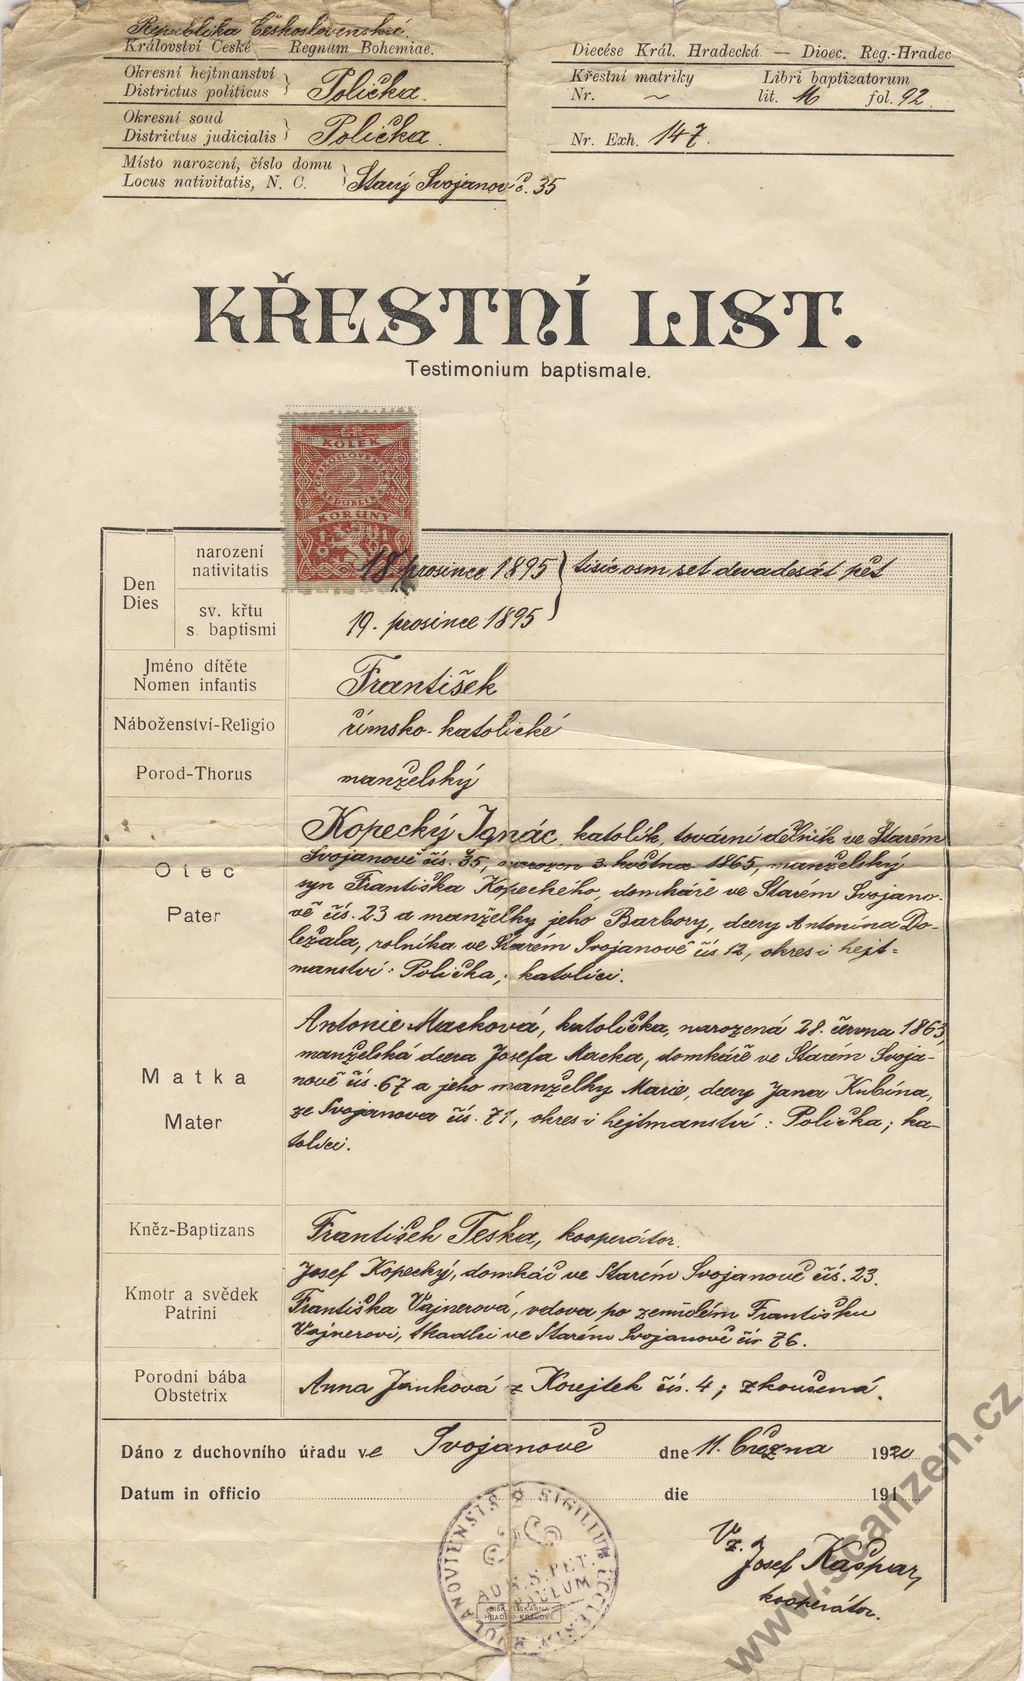 Republika Československá.
Království České — Regnum Bohemiae.
Okresní hejtmanství
Districtus politicus } Polička.
Okresní soud
Districtus judicialis } Polička.
Místo narození, číslo domu
Locus nativitatis, N. C. } Starý Svojanov č. 35
Diecése Král. Hradecká — Dioec. Reg.-Hradec
Křestní matriky Libri baptizatorum
Nr. ~ lit. M fol. 92.
Nr. Exh. 147.
KŘESTNÍ LIST.
Testimonium baptismale.
KOLEK
ČESKOSLOVENSKÁ
2
REPUBLIKA
KORUNY
1919
Den
Dies
narození
nativitatis
18. prosince 1895 } tisíc osm set devadesát pět
sv. křtu
s. baptismi
19. prosince 1895
Jméno dítěte
Nomen infantis
František
Náboženství-Religio
římsko-katolické
Porod-Thorus
manželský
Otec
Pater
Kopecký Ignác, katolík, tovární dělník ve Starém
Svojanově čís. 35, narozen 3. května 1865, manželský
syn Františka Kopeckého, domkáře ve Starém Svojano-
vě čís. 23 a manželky jeho Barbory, dcery Antonína Do-
ležala, rolníka ve Starém Svojanově čís 12, okres i hejt-
manství: Polička; katolíci.
Matka
Mater
Antonie Macková, katolička, narozená 28. června 1863,
manželská dcera Josefa Macka, domkáře ve Starém Svoja-
nově čís. 67 a jeho manželky Marie, dcery Jana Kubína,
ze Svojanova čís. 71, okres i hejtmanství: Polička; ka-
tolíci.
Kněz-Baptizans
František Teska, kooperátor.
Kmotr a svědek
Patrini
Josef Kopecký, domkář ve Starém Svojanově čís. 23.
Františka Vajnerová, vdova po zemřelém Františku
Vajnerovi, tkadlci ve Starém Svojanově čís 76.
Porodní bába
Obstetrix
Anna Janková z Korejtek čís. 4; zkoušená.
Dáno z duchovního úřadu ve Svojanově dne 11. března 1920
Datum in officio die 191
SIGILLUM ECCLESIAE SVOJANOVIENSIS
AD S.S. PET.
PAULUM
BISK. TISKÁRNA
HRADEC KRÁLOVÉ
Vz.
Josef Kašpar,
kooperátor.
www.scanzen.cz